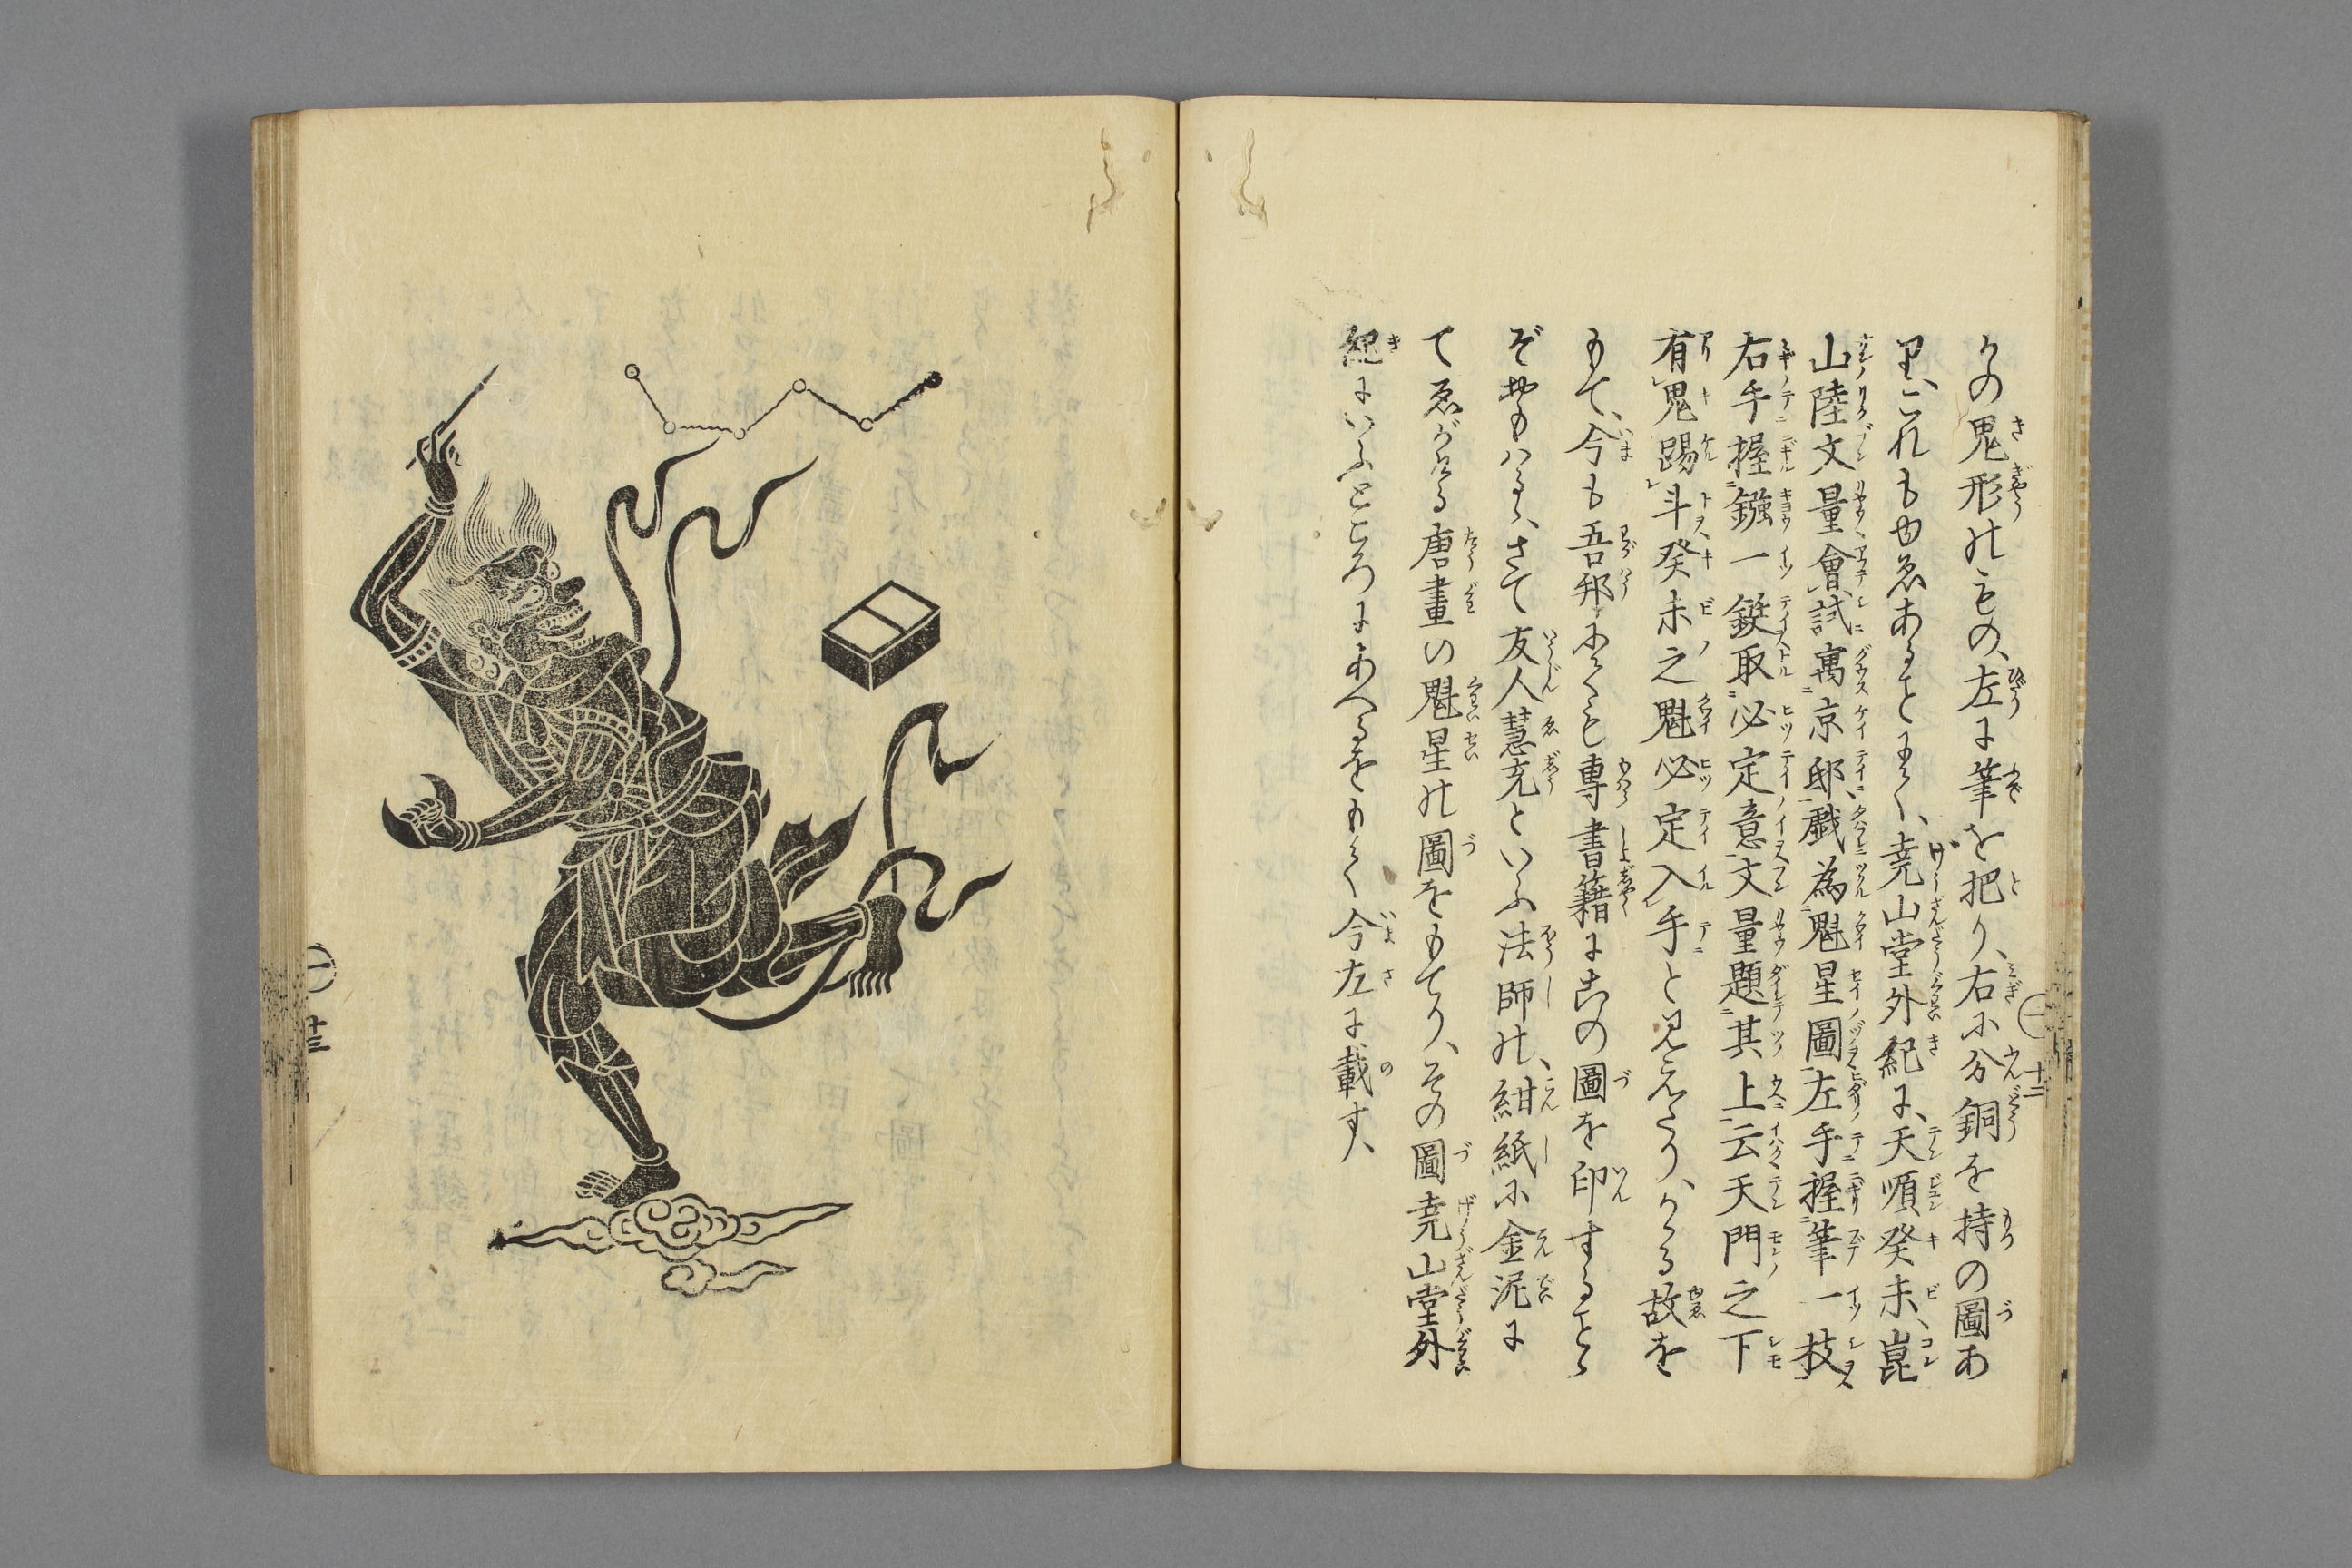 かの鬼形のもの、左に筆を把り、右に分銅を持の圖あ
り、これもゆゑあることにて、堯山堂外紀に、天順癸未、崑
山陸文量會試寓京邸戯為魁星圖左手握筆一技
右手握鏹一錠取必定意文量題其上云天門之下
有鬼踢斗癸未之魁必定入手と見えたり、かゝる故を
もて、今も吾邦にても専書籍に此の圖を印すること
ぞおもはるゝ、さて友人慧充といふ法師の、紺紙に金泥に
てゑがける唐畫の魁星の圖をもてり、その圖堯山堂外
紀にいふところにあへるをもて今左に載す、
一 十二
一 十三